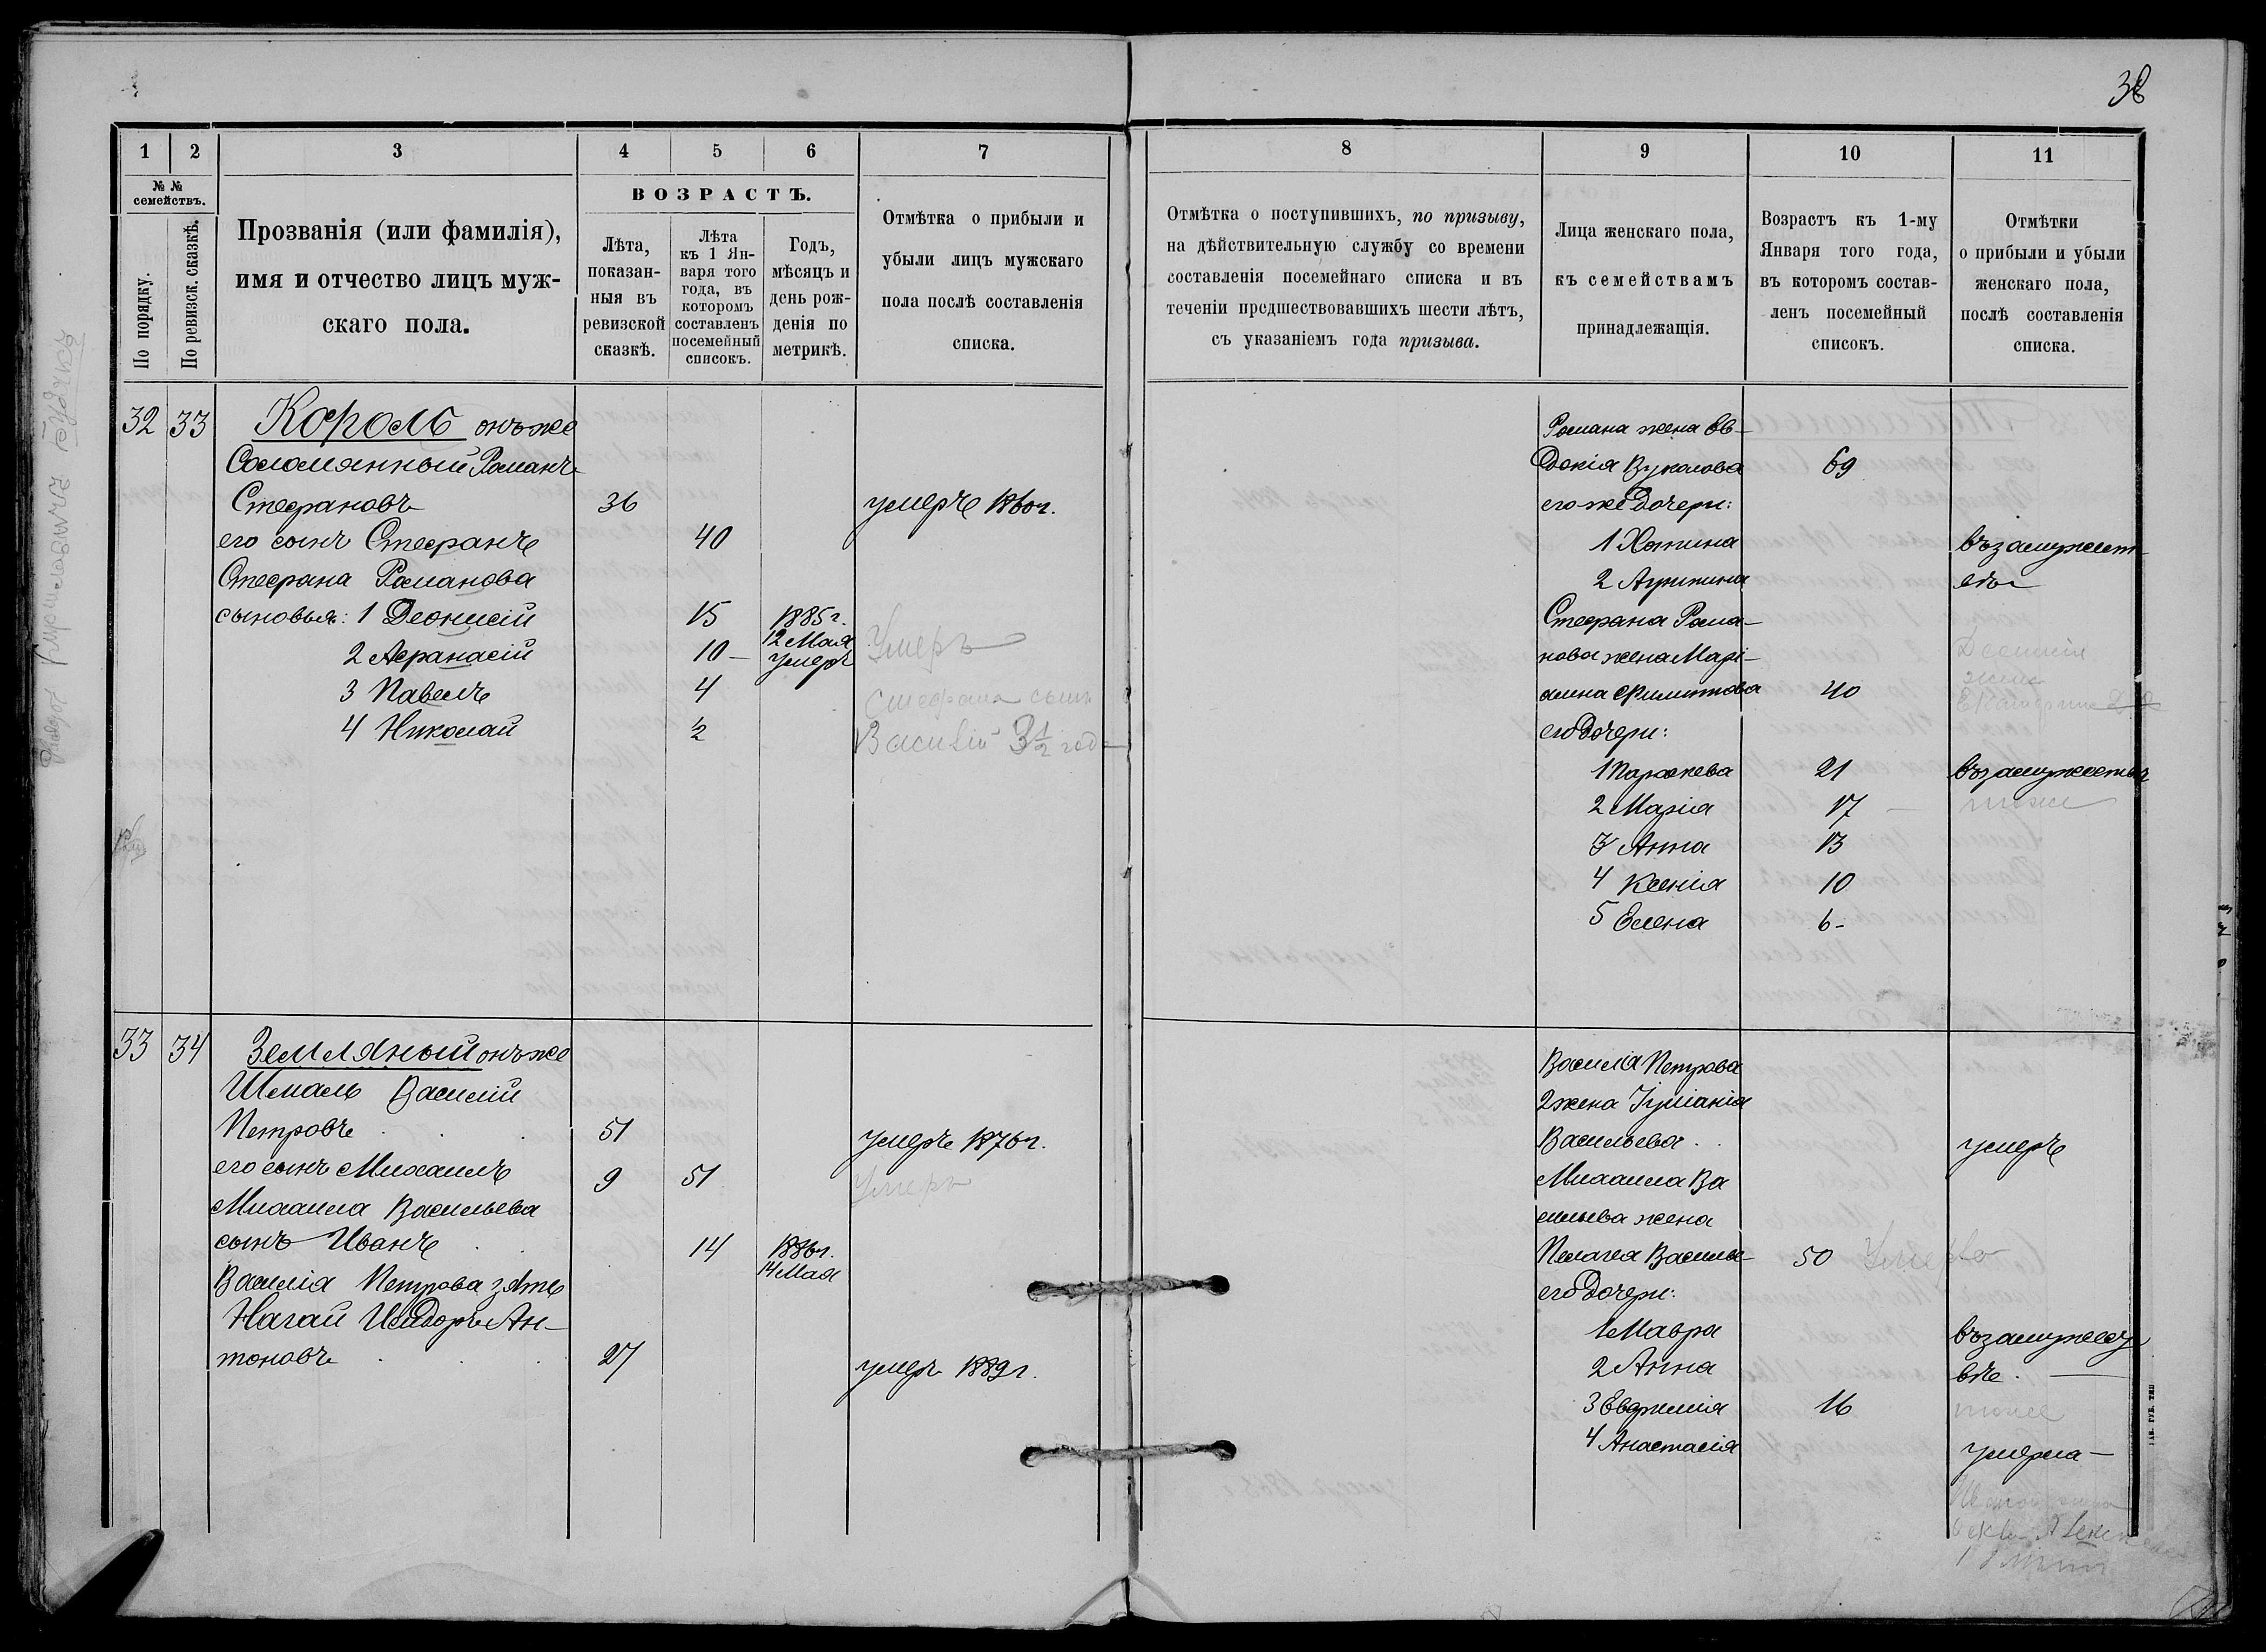 38
1
2
3
4
5
6
7
8
9
10
11
№ №
семействъ.
По порядку.
По ревизск. сказкѣ.
Прозванія (или фамилія),
имя и отчество лицъ муж-
скаго пола.
ВОЗРАСТЪ.
Лѣта,
показан-
ныя въ
ревизской
сказкѣ.
Лѣта
къ 1 Ян-
варя того
года, въ
которомъ
составленъ
посемейный
списокъ.
Годъ,
мѣсяцъ и
день рож-
денія по
метрикѣ.
Отмѣтка о прибыли и
убыли лицъ мужскаго
пола послѣ составленія
списка.
Отмѣтка о поступившихъ, по призыву,
на дѣйствительную службу со времени
составленія посемейнаго списка и въ
теченіи предшествовавшихъ шести лѣтъ,
съ указаніемъ года призыва.
Лица женскаго пола,
къ семействамъ
принадлежащія.
Возрастъ къ 1-му
Января того года,
въ которомъ состав-
ленъ посемейный
списокъ.
Отмѣтки
о прибыли и убыли
женскаго пола,
послѣ составленія
списка.
32 33 Король онъ же
Соломянный Романъ
Стефановъ 36 умеръ 1860 г.
его сынъ Стефанъ 40
Стефана Романова
сыновья: 1 Деонисій 15 1885 г.
12 Мая
2 Афанасій 10 – умеръ Умеръ
3 Павелъ 4 Стефана сынъ
4 Николай ½ Василій 3½ года
Романа жена Ев-
докія Вуколова 69
его же дочери:
1 Хотина въ замужест-
2 Агрипина вѣ
Стефана Рома-
нова жена Марі- Деонисія
жена
амна Филиппова 40 Екатерина
его дочери:
1 Параскева 21 въ замужествѣ
2 Марія 17 – тоже
3 Анна 13
4 Ксенія 10
5 Елена 6 -
33 34 Земляный онъ же
Шмаль Василій
Петровъ 51 умеръ 1876 г.
его сынъ Михаилъ 9 51 Умеръ
Михаила Васильева
сынъ Иванъ 14 1886 г.
14 Мая
Василія Петрова зять
Нагай Исидоръ Ан-
тоновъ 27 умеръ 1889 г.
Василія Петрова
2 жена Іуліанія
Васильева умеръ
Михаила Ва
сильева жена
Пелагея Василье- 50 Умерла
его дочери:
1 Мавра въ замужест
2 Анна вѣ. –
3 Евфимія 16 тоже
4 Анастасія умерла –